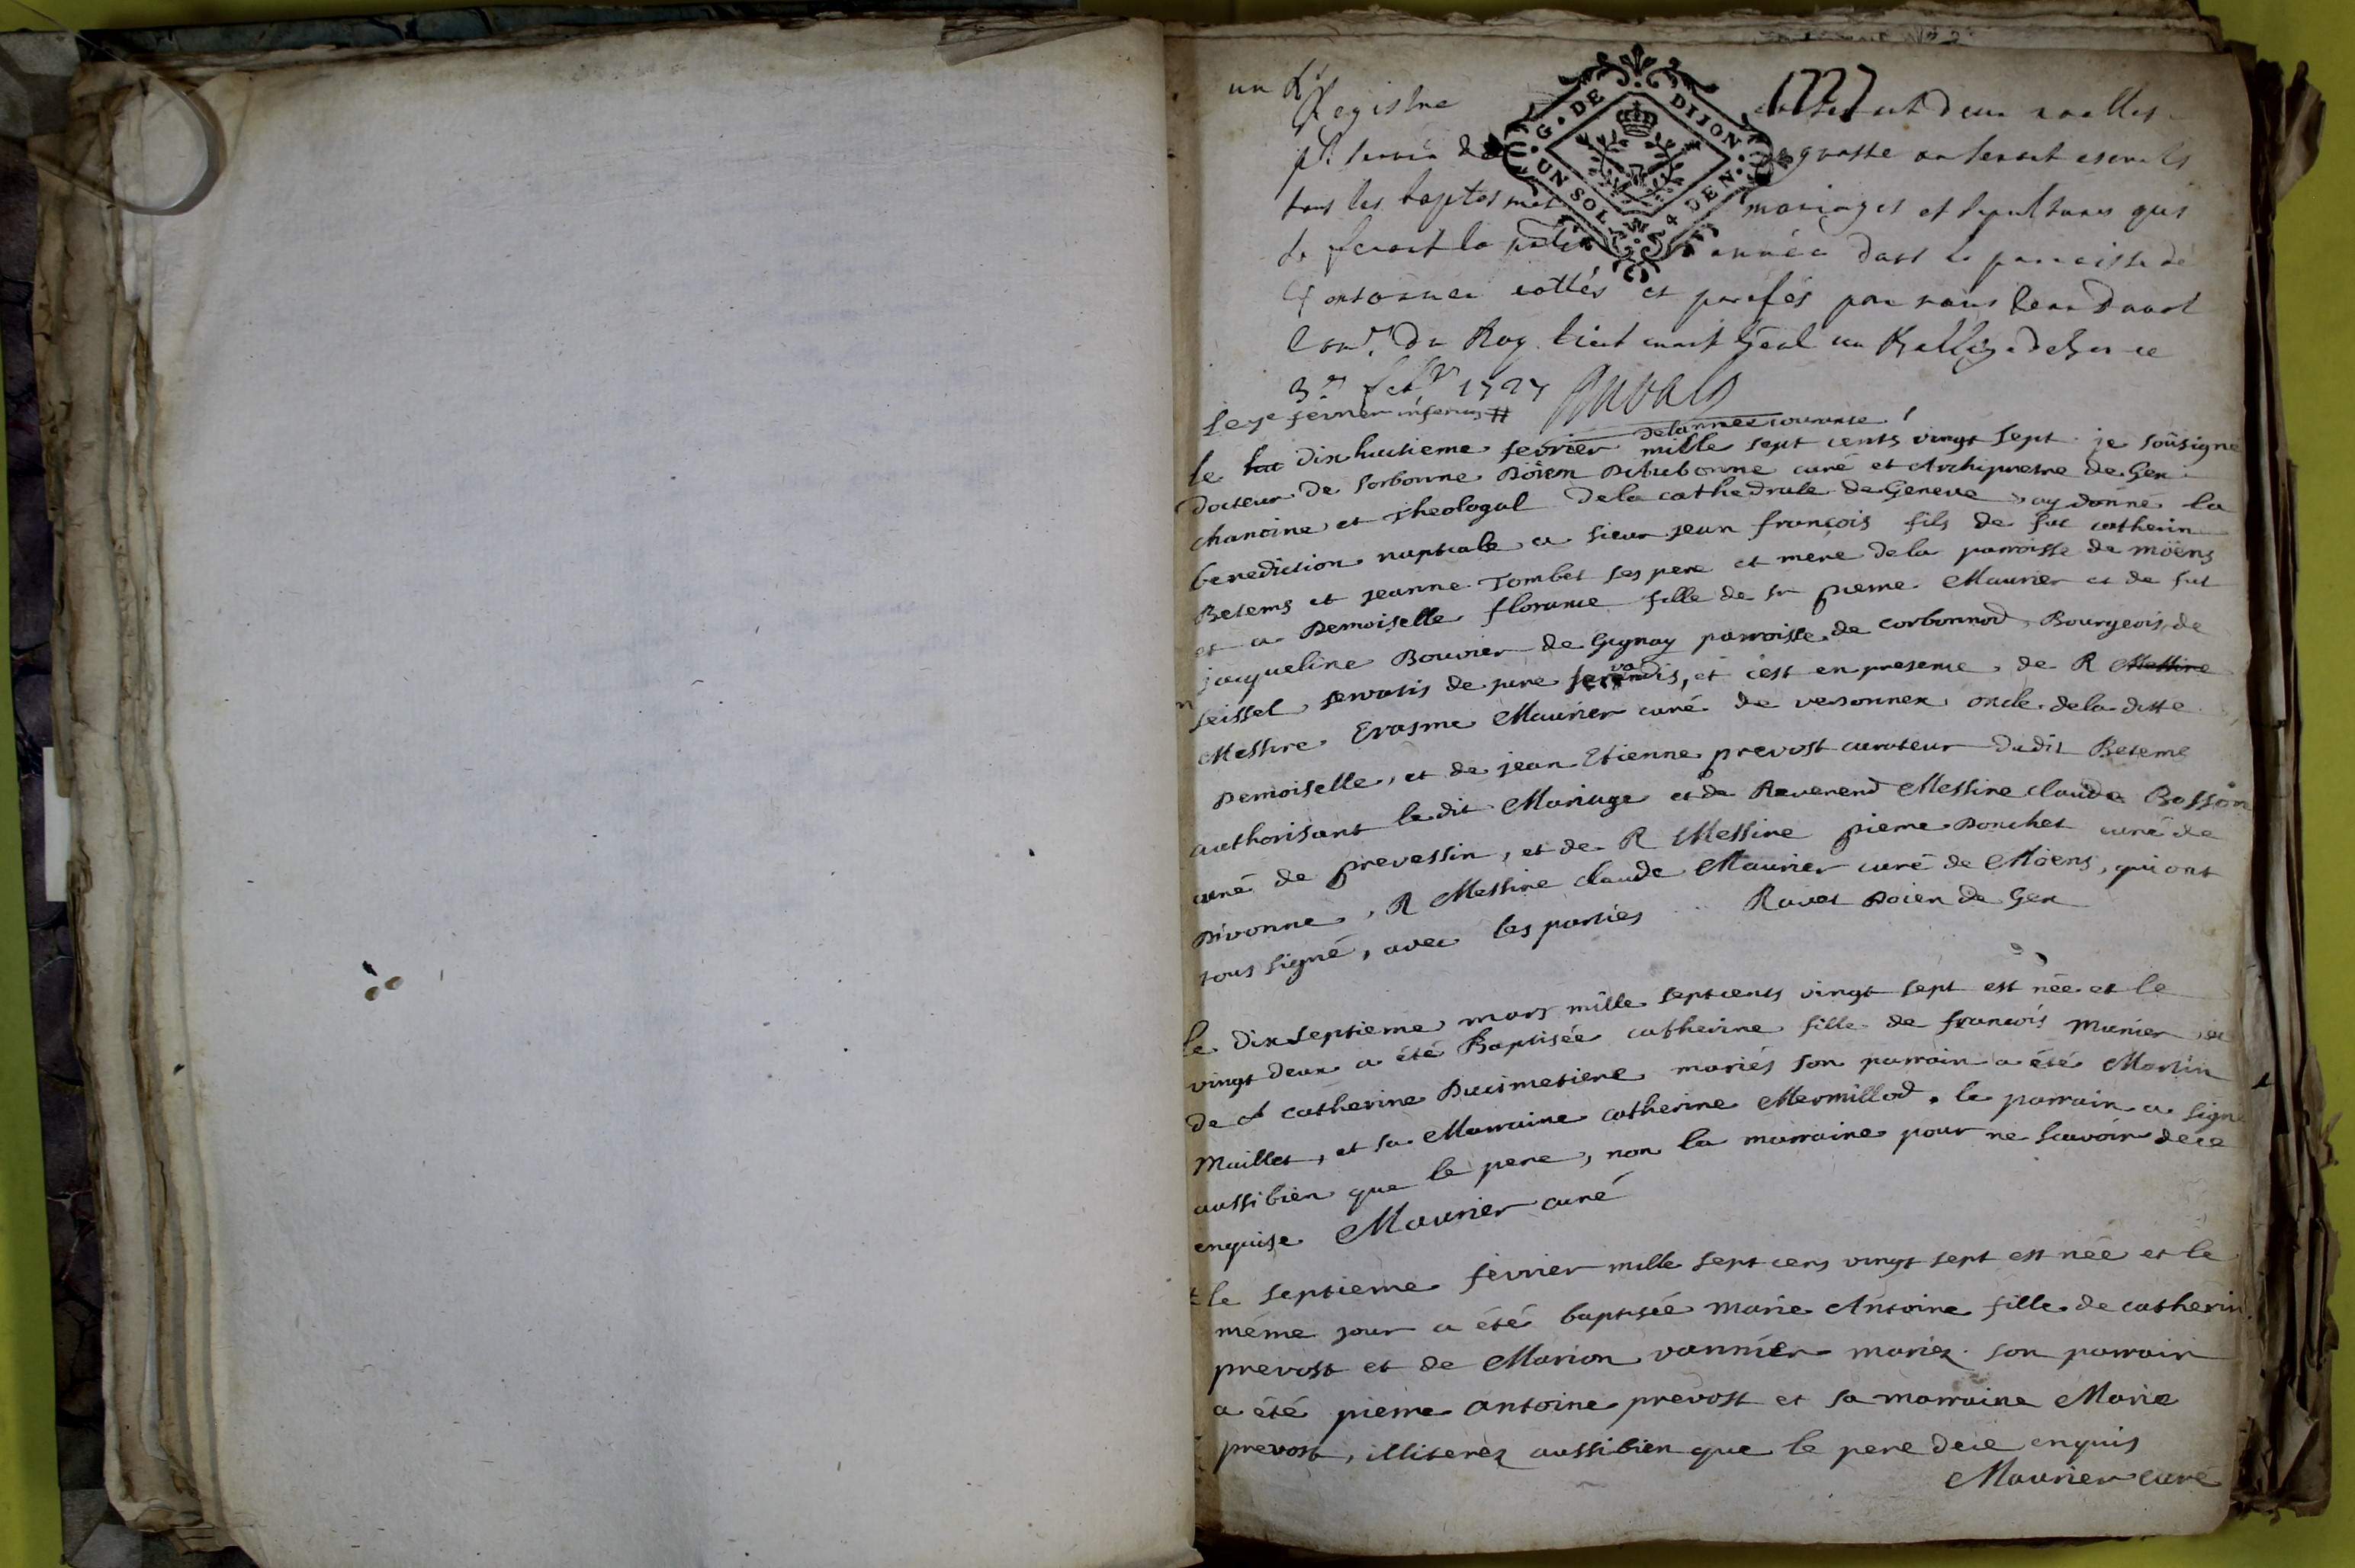 un
1727
G. DE DIJON. UN SOL 4 DEN.
Registre contenant deux
grosse
tous les baptesmes mariages et sepultures qui
se feront la année dans la parroisse de
cottés et parafés par nous
du Roy
3e 1727
le 7e fevrier inferius #
de lannee courante
le dix huitieme fevrier mille sept cents vingt sept je soûsigné
docteur de sorbonne Doïen curé et Archipretre de Gex
chanoine et theologal dela cathedrale de Geneve ay donné la
benediction nuptiale a sieur jean françois fils de fut catherin
Betems et jeanne Tombet ses pere et mere dela parroisse de möens
et a Demoiselle florance fille de sr pierre Maurier et de fut
jacqueline Bouvier de Gignay parroisse de corbonnod, Bourgeois de
seissel, servatis de jure servandis, et c'est en presence de R Messire
Messire Erasme Maurier curé de versonnex oncle dela ditte
Demoiselle, et de jean Etienne prevost curateur dudit Betems
authorisant ledit Mariage et de Reverend Messire claude Bosson
curé de prevessin, et de R Messire pierre Donchet curé de
Divonne, R Messire claude Maurier curé de Möens, qui ont
tous signé, avec les parties Ravet Doien de Gex
le dix septieme mars mille septcents vingt sept est née et le
vingt deux a été Baptisée catherine fille de francois Munier et
de catherine Ducimetiere mariés son parrain a été Martin
Maillet, et sa Marraine catherine Mermillod. le parrain a signé
aussi bien que le pere, non la marraine pour ne scavoir de ce
enquise Maurier curé
le septieme fevrier mille sept cens vingt sept est née et le
même jour a été baptisée marie Antoine fille de catherin
prevost et de Marion vannier mariez son parrain
a été pierre antoine prevost et sa marraine Marie
prevost, illiterez aussi bien que le pere de ce enquis
Maurier curé